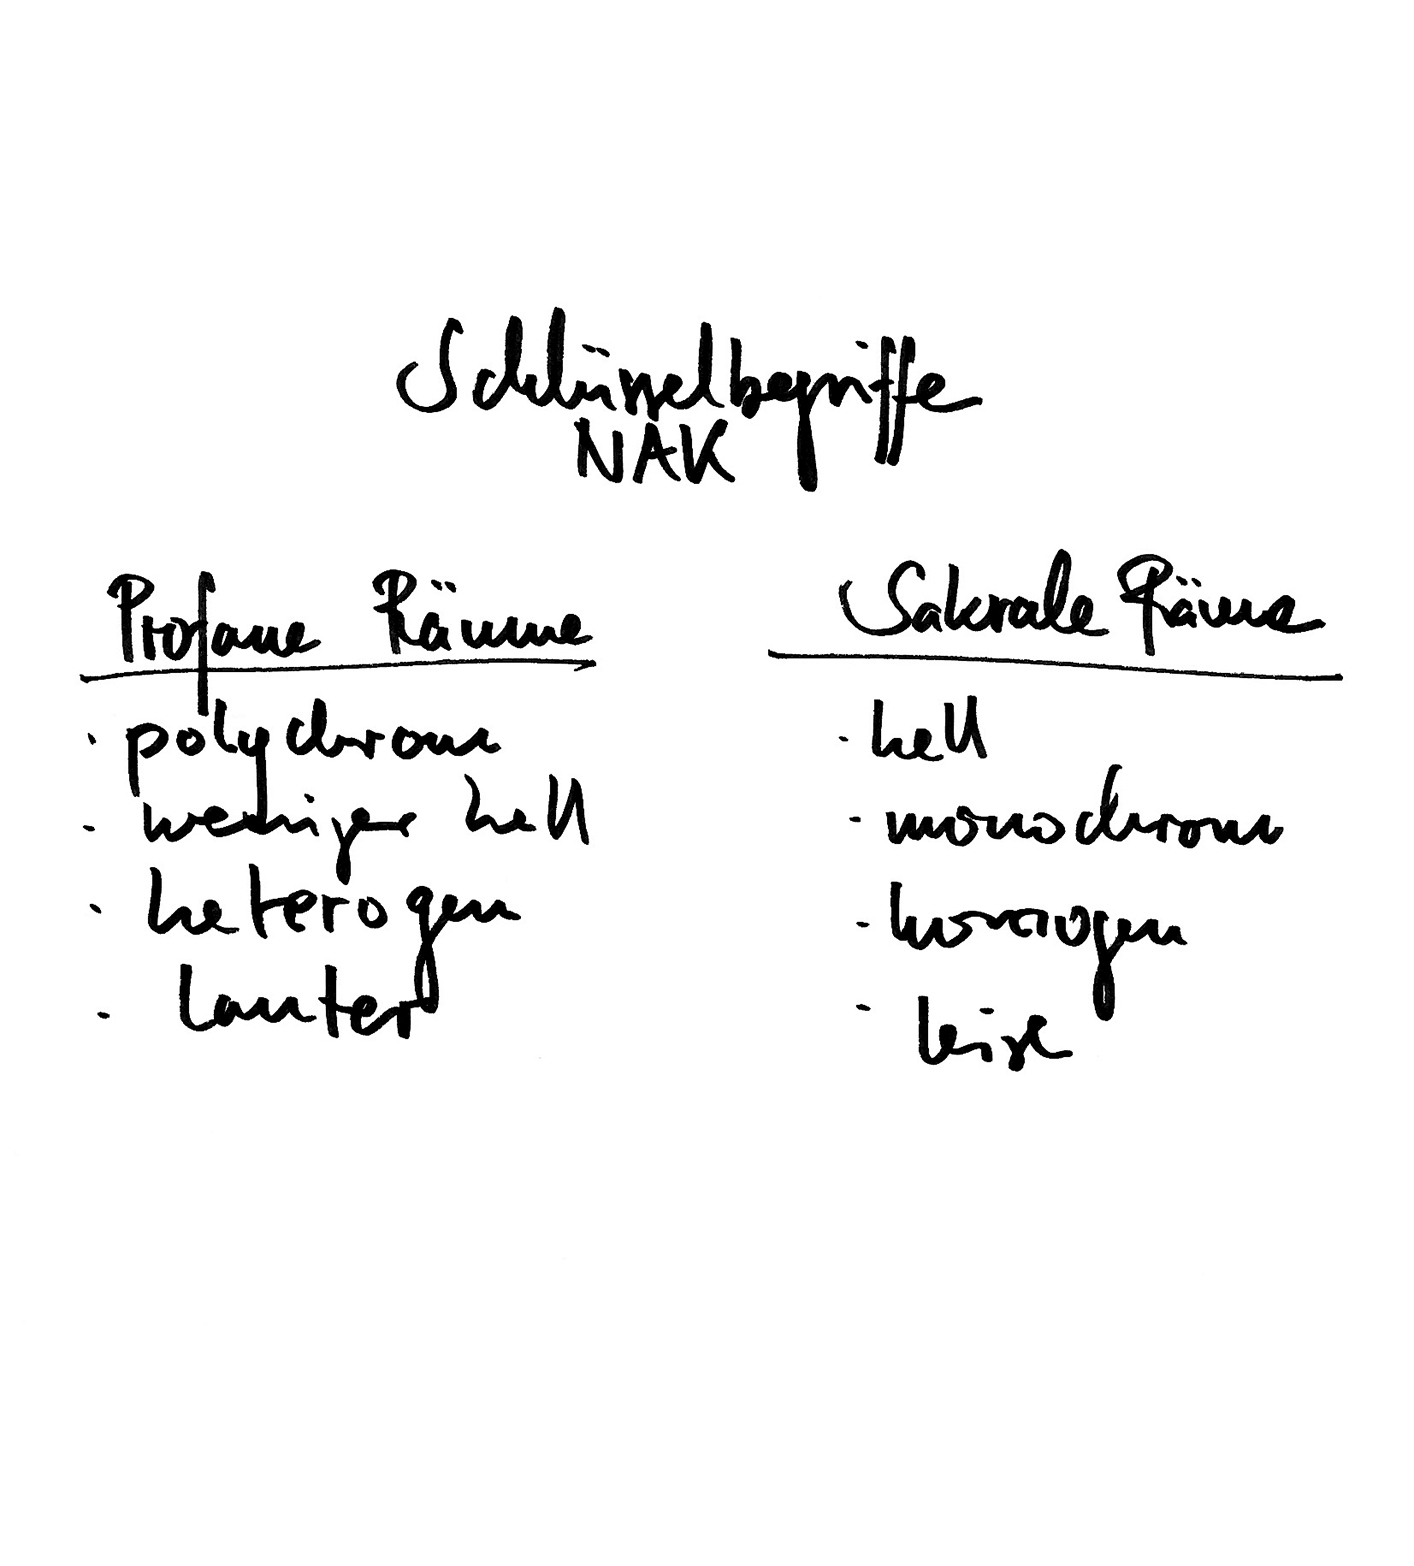 Schlüsselbegriffe
NAK
Profane Räume
· polychrom
· weniger hell
· heterogen
· lauter
Sakrale Räume
· hell
· monochrom
· homogen
· leise